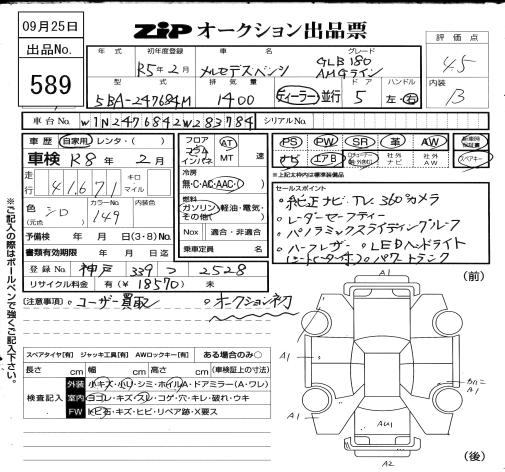 09月25日
ZIP オークション出品票
出品No.
589
評価点
4.5
内装
B
年式 初年度登録 車名 グレード
R5年2月 メルセデスベンツ GLB180 AMGライン
型式 排気量 ドア ハンドル
5BA-247684M 1400 ディーラー・並行 5 左・右
車台No. W1N2476842W283784 シリアルNo.
車歴 自家用・レンタ・( )
車検 R8年2月
走行 41,671 キロ マイル
色 シロ (元色) カラーNo. 149 内装色
予備検 年 月 日(3・8)No.
書類有効期限 年 月 日迄
登録No. 神戸 339 つ 2528
リサイクル料金 有(¥18570) 未
フロア コラム インパネ AT MT 速
冷房 無・C・AC・AAC・( )
燃料 ガソリン/軽油・電気・その他( )
Nox 適合・非適合
乗車定員 名
PS PW SR 革 AW 新車時保証書
ナビ エアB 社外ナビ 社外AW スペアキー
※上記太枠内は標準装備品
セールスポイント
・純正ナビ TV 360°カメラ
・レーダーセーフティー
・パノラミックスライディングルーフ
・ハーフレザー ・LEDヘッドライト
(シートヒーター付) ・パワートランク
(注意事項) ・ユーザー買取 ・オークション初
※ご記入の際はボールペンで強くご記入下さい。
スペアタイヤ[有] ジャッキ工具[有] AWロックキー[有] ある場合のみ○
長さ cm 幅 cm 高さ cm (車検証上の寸法)
検査記入
外装 小キズ・小リ・シミ・ホイルA・ドアミラー(A・ワレ)
室内 ヨゴレ・キズ・スレ・コゲ・穴・キレ・破れ・ウキ
FW トビ石・キズ・ヒビ・リペア跡・X要ス
(前)
A1
A1
A1
A1
A1
AU1
A2
(後)